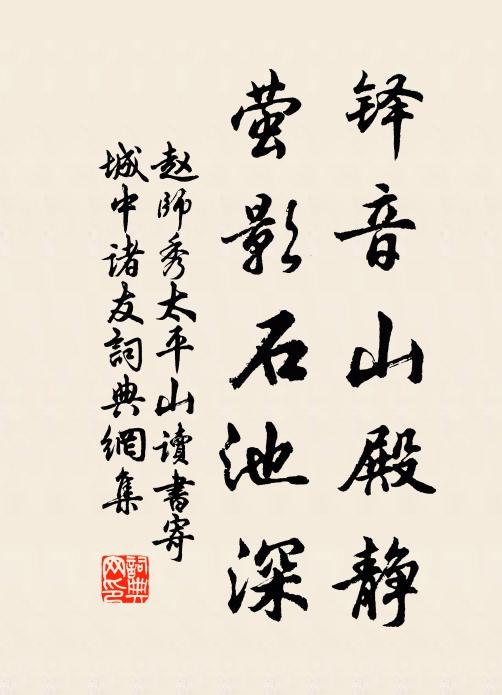 铎音山殿静
萤影石池深
赵师秀太平山讀書寄
城中诸友詞典網集
詞典
网印